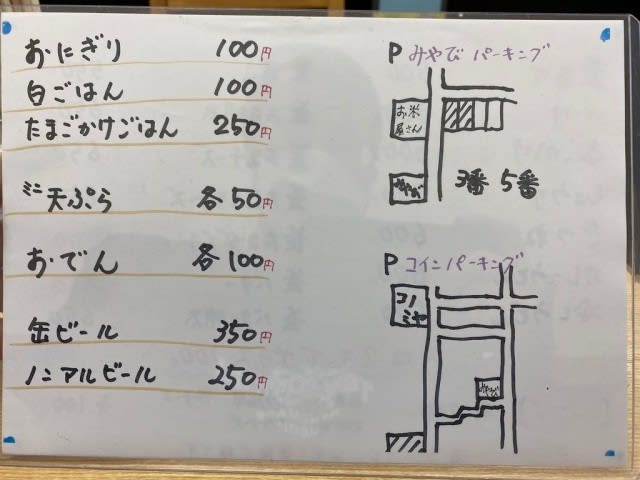 おにぎり 100円
白ごはん 100円
たまごかけごはん 250円
ミニ天ぷら 各50円
おでん 各100円
缶ビール 350円
ノンアルビール 250円
P みやび パーキング
お米
屋さん
みやび
3番 5番
P コインパーキング
コノ
ミヤ
みやび